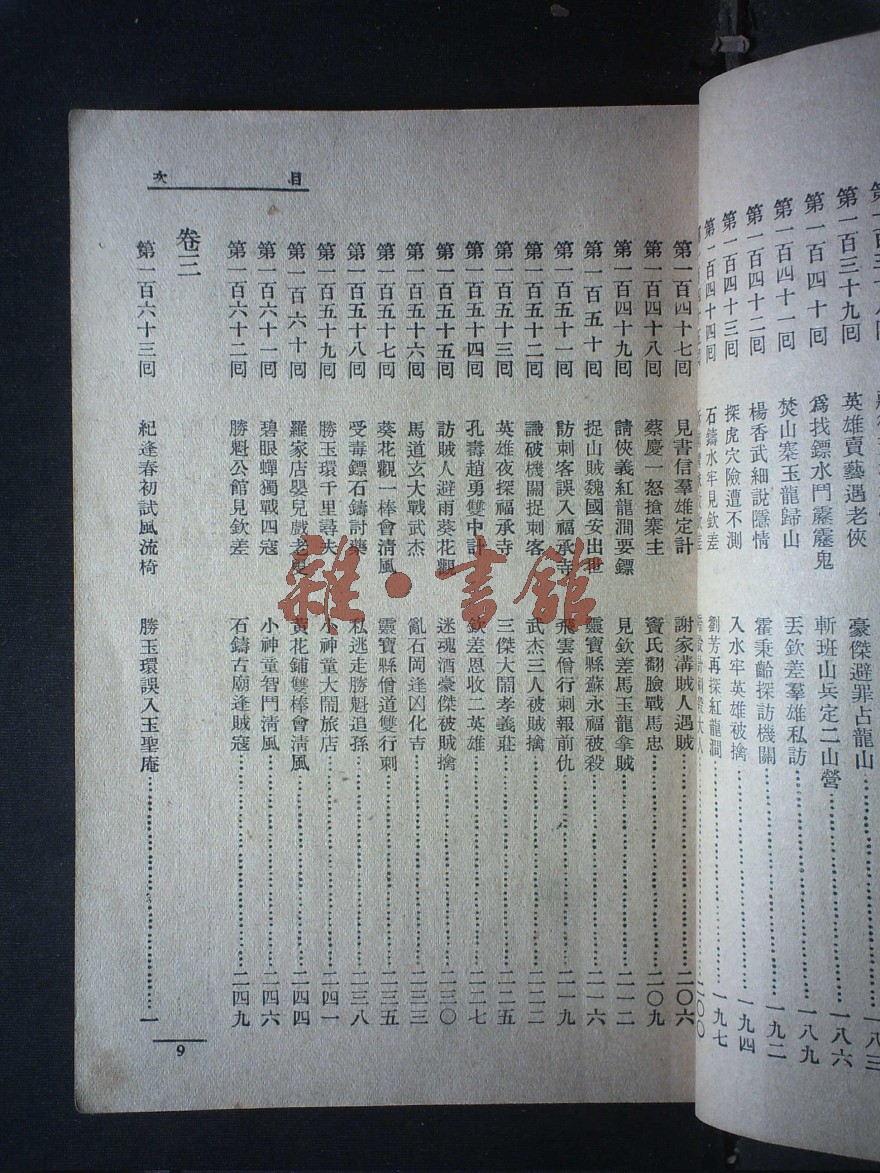 第一百三十九回 英雄賣藝遇老俠 豪傑避罪占龍山 一八三
第一百四十回 爲找鏢水鬥靂靂鬼 斬班山兵定二山營 一八六
第一百四十一回 焚山寨玉龍歸山 丟欽差羣雄私訪 一八九
第一百四十二回 楊香武細說隱情 霍秉齡探訪機關 一九二
第一百四十三回 探虎穴險遭不測 入水牢英雄被擒 一九四
第一百四十四回 石鑄水牢見欽差 劉芳再探紅龍澗 一九七
二〇〇
目次
第一百四十七回 見書信羣雄定計 謝家溝賊人遇賊 二〇六
第一百四十八回 蔡慶一怒搶寨主 竇氏翻臉戰馬忠 二〇九
第一百四十九回 請俠義紅龍澗要鏢 見欽差馬玉龍拿賊 二一二
第一百五十回 捉山賊魏國安出世 靈寶縣蘇永福被殺 二一六
第一百五十一回 訪刺客誤入福承寺 飛雲僧行刺報前仇 二一九
第一百五十二回 識破機關捉刺客 武杰三人被賊擒 二二二
第一百五十三回 英雄夜探福承寺 三傑大鬧孝義莊 二二五
第一百五十四回 孔壽趙勇雙中計 欽差恩收二英雄 二二七
第一百五十五回 訪賊人避雨葵花觀 迷魂酒豪傑被賊擒 二三〇
第一百五十六回 馬道玄大戰武杰 亂石岡逢凶化吉 二三三
第一百五十七回 葵花觀一棒會清風 靈寶縣僧道雙行刺 二三五
第一百五十八回 受毒鏢石鑄討藥 私逃走勝魁追孫 二三八
第一百五十九回 勝玉環千里尋夫 小神童大鬧旅店 二四一
第一百六十回 羅家店嬰兒戲老叟 黃花鋪雙棒會清風 二四四
第一百六十一回 碧眼蟬獨戰四寇 小神童智鬥清風 二四六
第一百六十二回 勝魁公館見欽差 石鑄古廟逢賊寇 二四九
卷三
第一百六十三回 紀逢春初試風流椅 勝玉環誤入玉聖庵 一
9
雜·書館